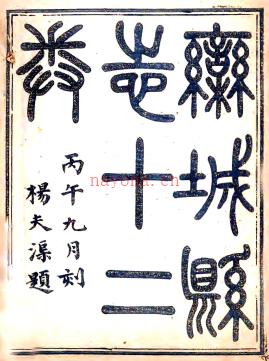 欒城縣
志十二
卷
丙午九月刻
楊夫渠題
nayona.cn